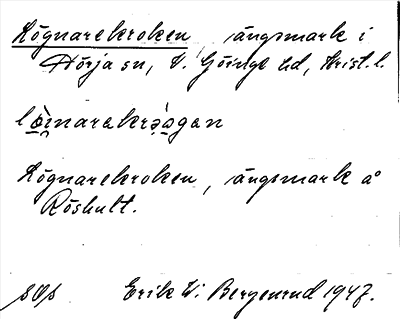 Lögnarekroken, ängsmark i
Hörja sn, V. Göinge hd, Krist. l.
Lögnarekroken, ängsmark å
Röshult.
Erik W. Bergenrud 1947.